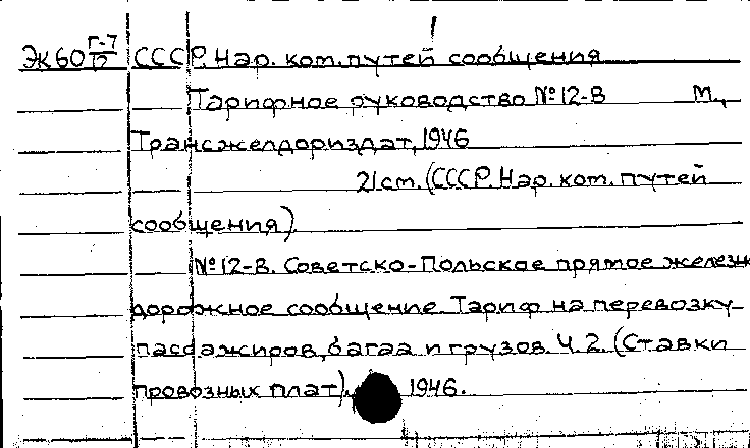 Эк60 Г-7/12 СССР. Нар. ком. путей сообщения
Тарифное руководство №12-В М.,
Трансжелдориздат, 1946
21см. (СССР. Нар. ком. путей
сообщения).
№12-В. Советско-Польское прямое железн
дорожное сообщение. Тариф на перевозку
пассажиров, багаа и грузов. Ч. 2. (Ставки
провозных плат). 1946.